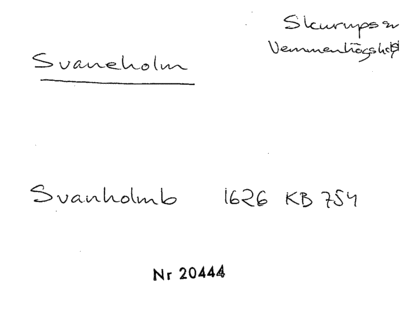 Skurups sn
Vemmenhögs hd
Svaneholm
Svanholmb 1626 KB 754
Nr 20444